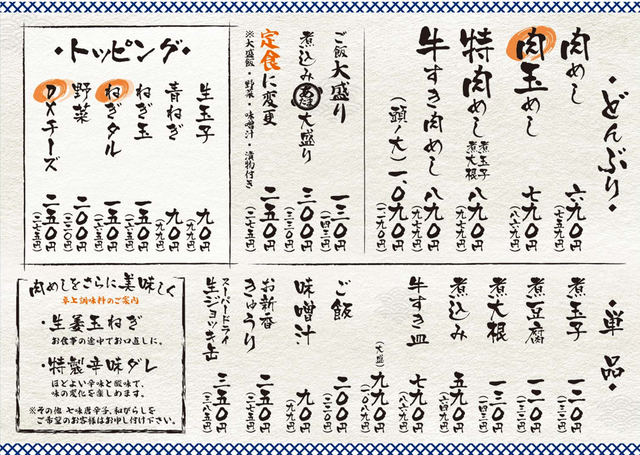 ・どんぶり・
肉めし 六九〇円
(七五九円)
肉玉めし 七九〇円
(八六九円)
特肉めし 煮玉子
煮大根 八九〇円
(九七九円)
牛すき肉めし 八九〇円
(九七九円)
(頭ノ大) 一、〇九〇円
(一、一九九円)
ご飯大盛り 一三〇円
(一四三円)
煮込み 大盛り 三〇〇円
(三三〇円)
定食に変更 二五〇円
(二七五円)
※大盛飯・野菜・味噌汁・漬物付き
・トッピング・
生玉子 九〇円
(九九円)
青ねぎ 九〇円
(九九円)
ねぎ玉 一五〇円
(一六五円)
ねぎタル 一五〇円
(一六五円)
野菜 二〇〇円
(二二〇円)
DXチーズ 二五〇円
(二七五円)
・単品・
煮玉子 一二〇円
(一三二円)
煮豆腐 一二〇円
(一三二円)
煮大根 一三〇円
(一四三円)
煮込み 五九〇円
(六四九円)
牛すき皿 七九〇円
(八六九円)
(大盛) 九九〇円
(一、〇八九円)
ご飯 二〇〇円
(二二〇円)
味噌汁 九〇円
(九九円)
お新香
きゅうり 二五〇円
(二七五円)
スーパードライ
生ジョッキ缶 三五〇円
(三八五円)
肉めしをさらに美味しく
卓上調味料のご案内
・生姜玉ねぎ
お食事の途中でお口直しに。
・特製辛味ダレ
ほどよい辛味と酸味で、
味の変化を楽しめます。
※その他 七味唐辛子、和がらしを
ご希望のお客様はお申し付け下さい。